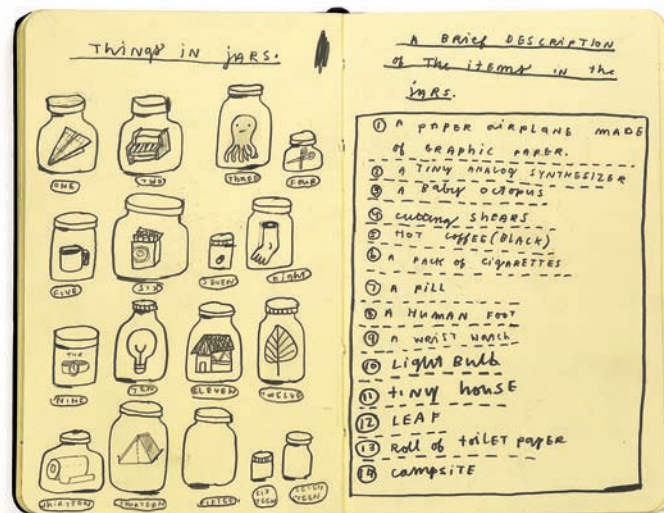 Things in JARS.
ONE TWO THREE FOUR
FIVE SIX SEVEN EIGHT
NINE TEN ELEVEN TWELVE
THIRTEEN THIRTEEN SIX
TEEN
A BRIEF DESCRIPTION
of The items in the
JARS.
1 A PAPER AIRPLANE MADE
of GRAPHIC PAPER.
2 A TINY ANALOG SYNTHESIZER
3 A Baby octopus
4 cutting SHEARS
5 HOT COFFEE (BLACK)
6 A PACK of CIGARETTES
7 A Pill
8 A HUMAN FOOT
9 A WRIST
10 Light Bulb
11 tiny house
12 LEAF
13 Roll of toilet paper
14 CAMPSITE